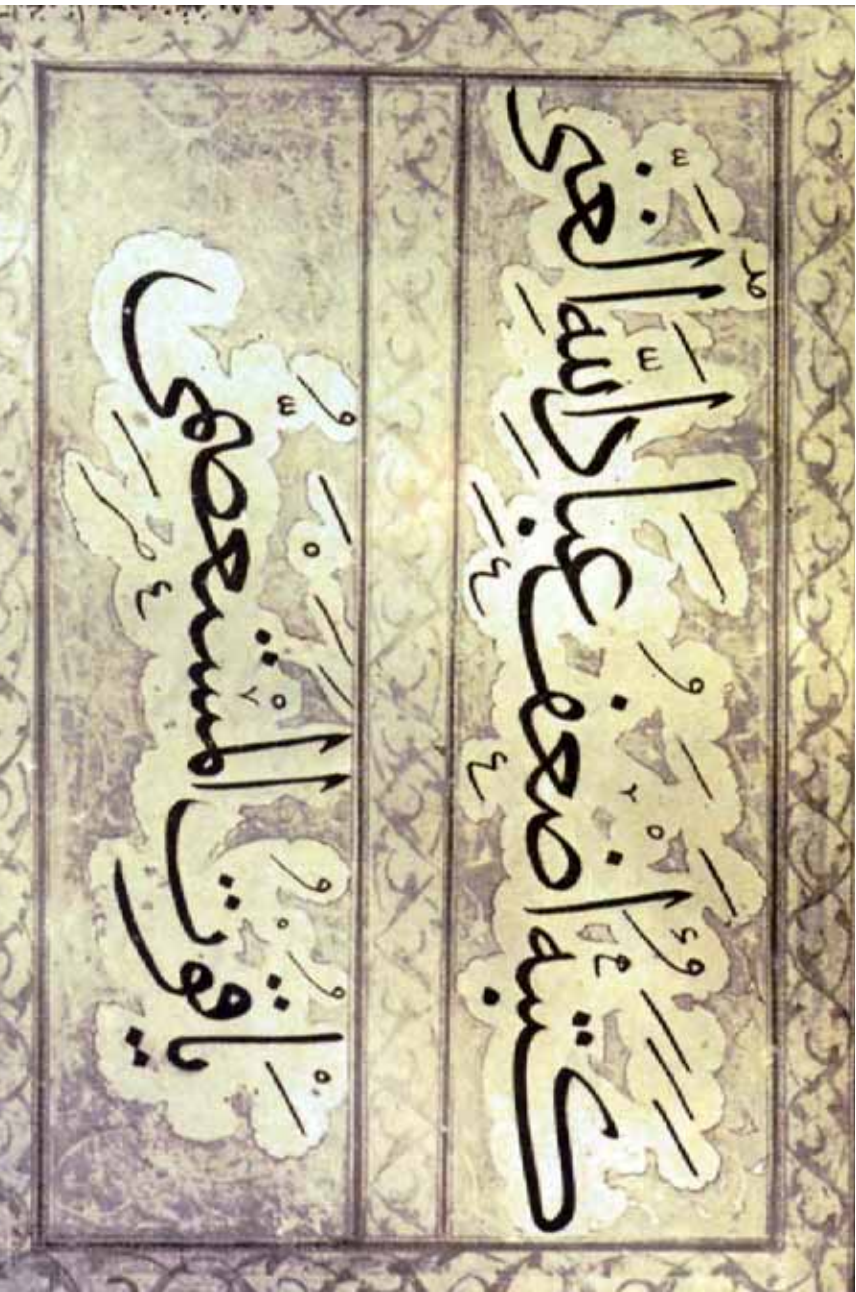 كَتَبَهُ أَضْعَفُ عِبَادِ اللَّهِ الْغَنِيِّ
يَاقُوتُ الْمُسْتَعْصِمِيُّ